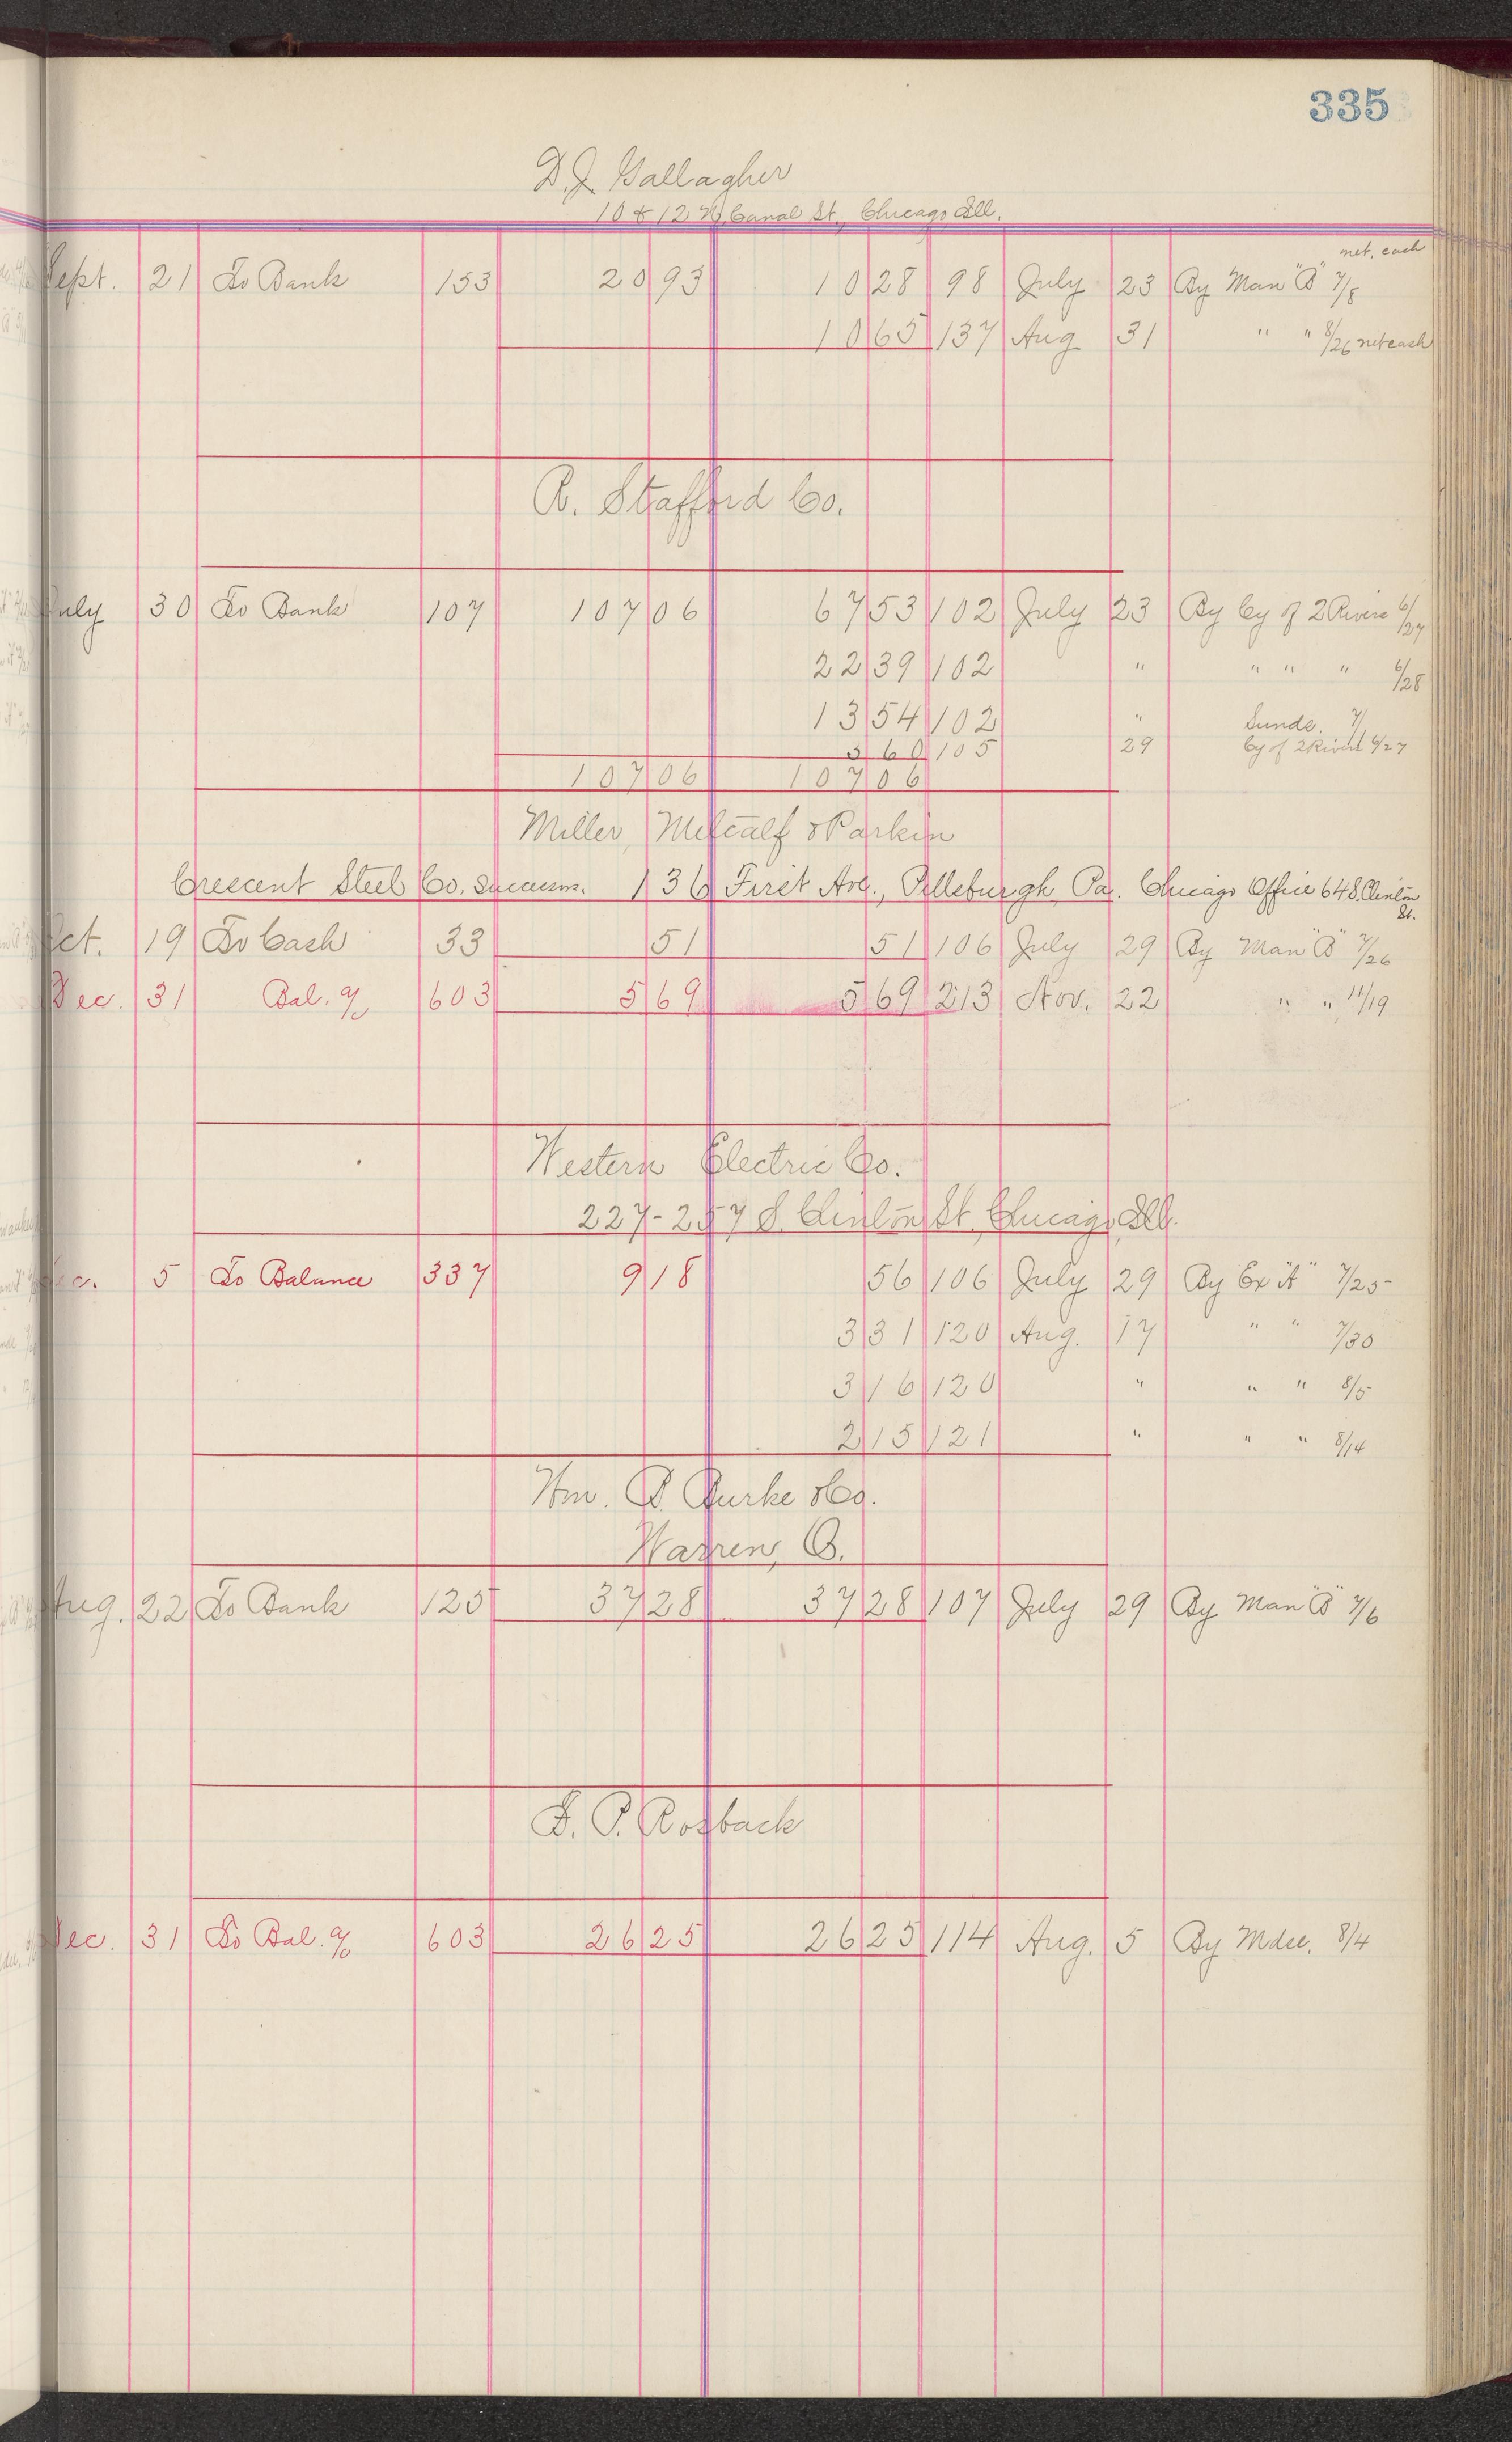 335
D. J. Gallagher
10 & 12 N. Canal St., Chicago Ill.
net. each
Sept. 21 To Bank 153 20 93 10 28 98 July 23 By Man "B" 7/8
10 65 137 Aug 31 " " 8/26 net cash
R. Stafford Co.
July 30 To Bank 107 107 06 67 53 102 July 23 By Cy of 2 Rivers 6/27
22 39 102 " " " " 6/28
13 54 102 " Sunds. 7/
3 60 105 29 Cy of 2 Rivers 6/27
107 06 107 06
Miller, Metcalf & Parkin
Crescent Steel Co. Successors. 136 First Ave., Pittsburgh, Pa. Chicago Office 64 S. Clinton
St.
Oct. 19 To Cash 33 51 51 106 July 29 By Man "B" 7/26
Dec. 31 Bal. a/c 603 5 69 5 69 213 Nov. 22 " " 11/19
Western Electric Co.
227-257 S. Clinton St. Chicago Ill.
Dec. 5 To Balance 337 9 18 56 106 July 29 By Ex "A" 7/25
3 31 120 Aug. 17 " " 7/30
3 16 120 " " " 8/5
2 15 121 " " " 8/14
Wm. B. Burke & Co.
Warren, O.
Aug. 22 To Bank 125 37 28 37 28 107 July 29 By Man "B" 7/6
F. P. Rosback
Dec. 31 To Bal. a/c 603 26 25 26 25 114 Aug. 5 By Mdse. 8/4